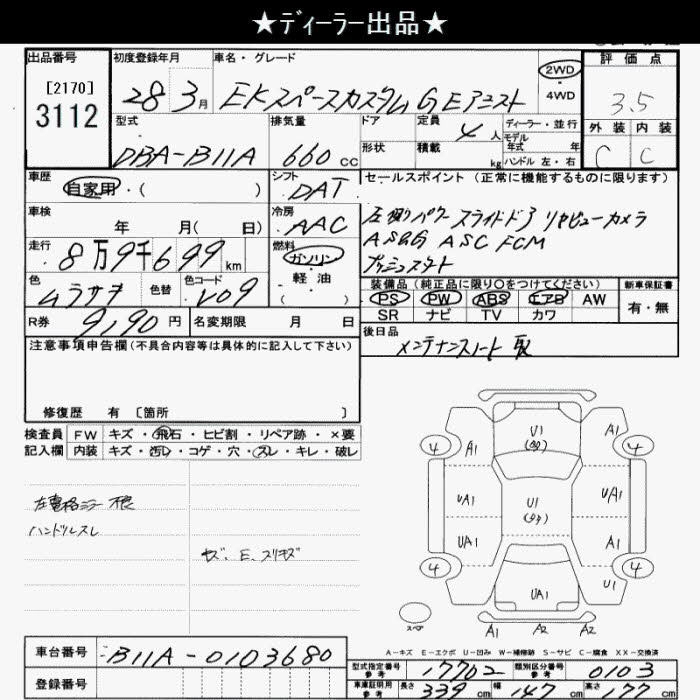 ★ディーラー出品★
出品番号 初度登録年月 車名・グレード 評価点
[2170]
3112
28 3月 EKスペースカスタム G Eアシスト
2WD
4WD
3.5
外装 内装
C C
型式 排気量 ドア 定員 ディーラー・並行
DBA-B11A 660 CC 4人 モデル年式 年
形状 積載 kg ハンドル 左・右
車歴 シフト セールスポイント (正常に機能するものに限ります)
自家用・( ) DAT
左側パワースライドドア リヤビューカメラ
車検 冷房
年 月( 日) AAC
ASG ASC FCM
走行 燃料
8万9千699km ガソリン
プッシュスタート
色 色替 色コード 軽油
ムラサキ V09 ( )
装備品 (純正品に限り○をつけてください) 新車保証書
PS PW ABS エアB AW 有・無
SR ナビ TV カワ
R券 9,190円 名変期限 月 日
後日品
メンテナンスノート 取
注意事項申告欄(不具合内容等は具体的に記入して下さい)
修復歴 有 〔箇所 〕
検査員 FW キズ・飛石・ヒビ割・リペア跡・×要
記入欄 内装 キズ・汚レ・コゲ・穴・スレ・キレ・破レ
左電格ミラー不良
ハンドルスレ
キズ、E、スリキズ
U1 A1 A1
4 4
UA1 U1 U/A1
UA1 A1
4 4
UA1 U1
スペア
A1 A2 A2
A-キズ E-エクボ U-凹み W-補修跡 S-サビ C-腐食 XX-交換済
車台番号 B11A-0103680
登録番号
型式指定番号 参考 17702 類別区分番号 参考 0103
車庫証明用 参考 長さ 339cm 幅 147cm 高さ 177cm